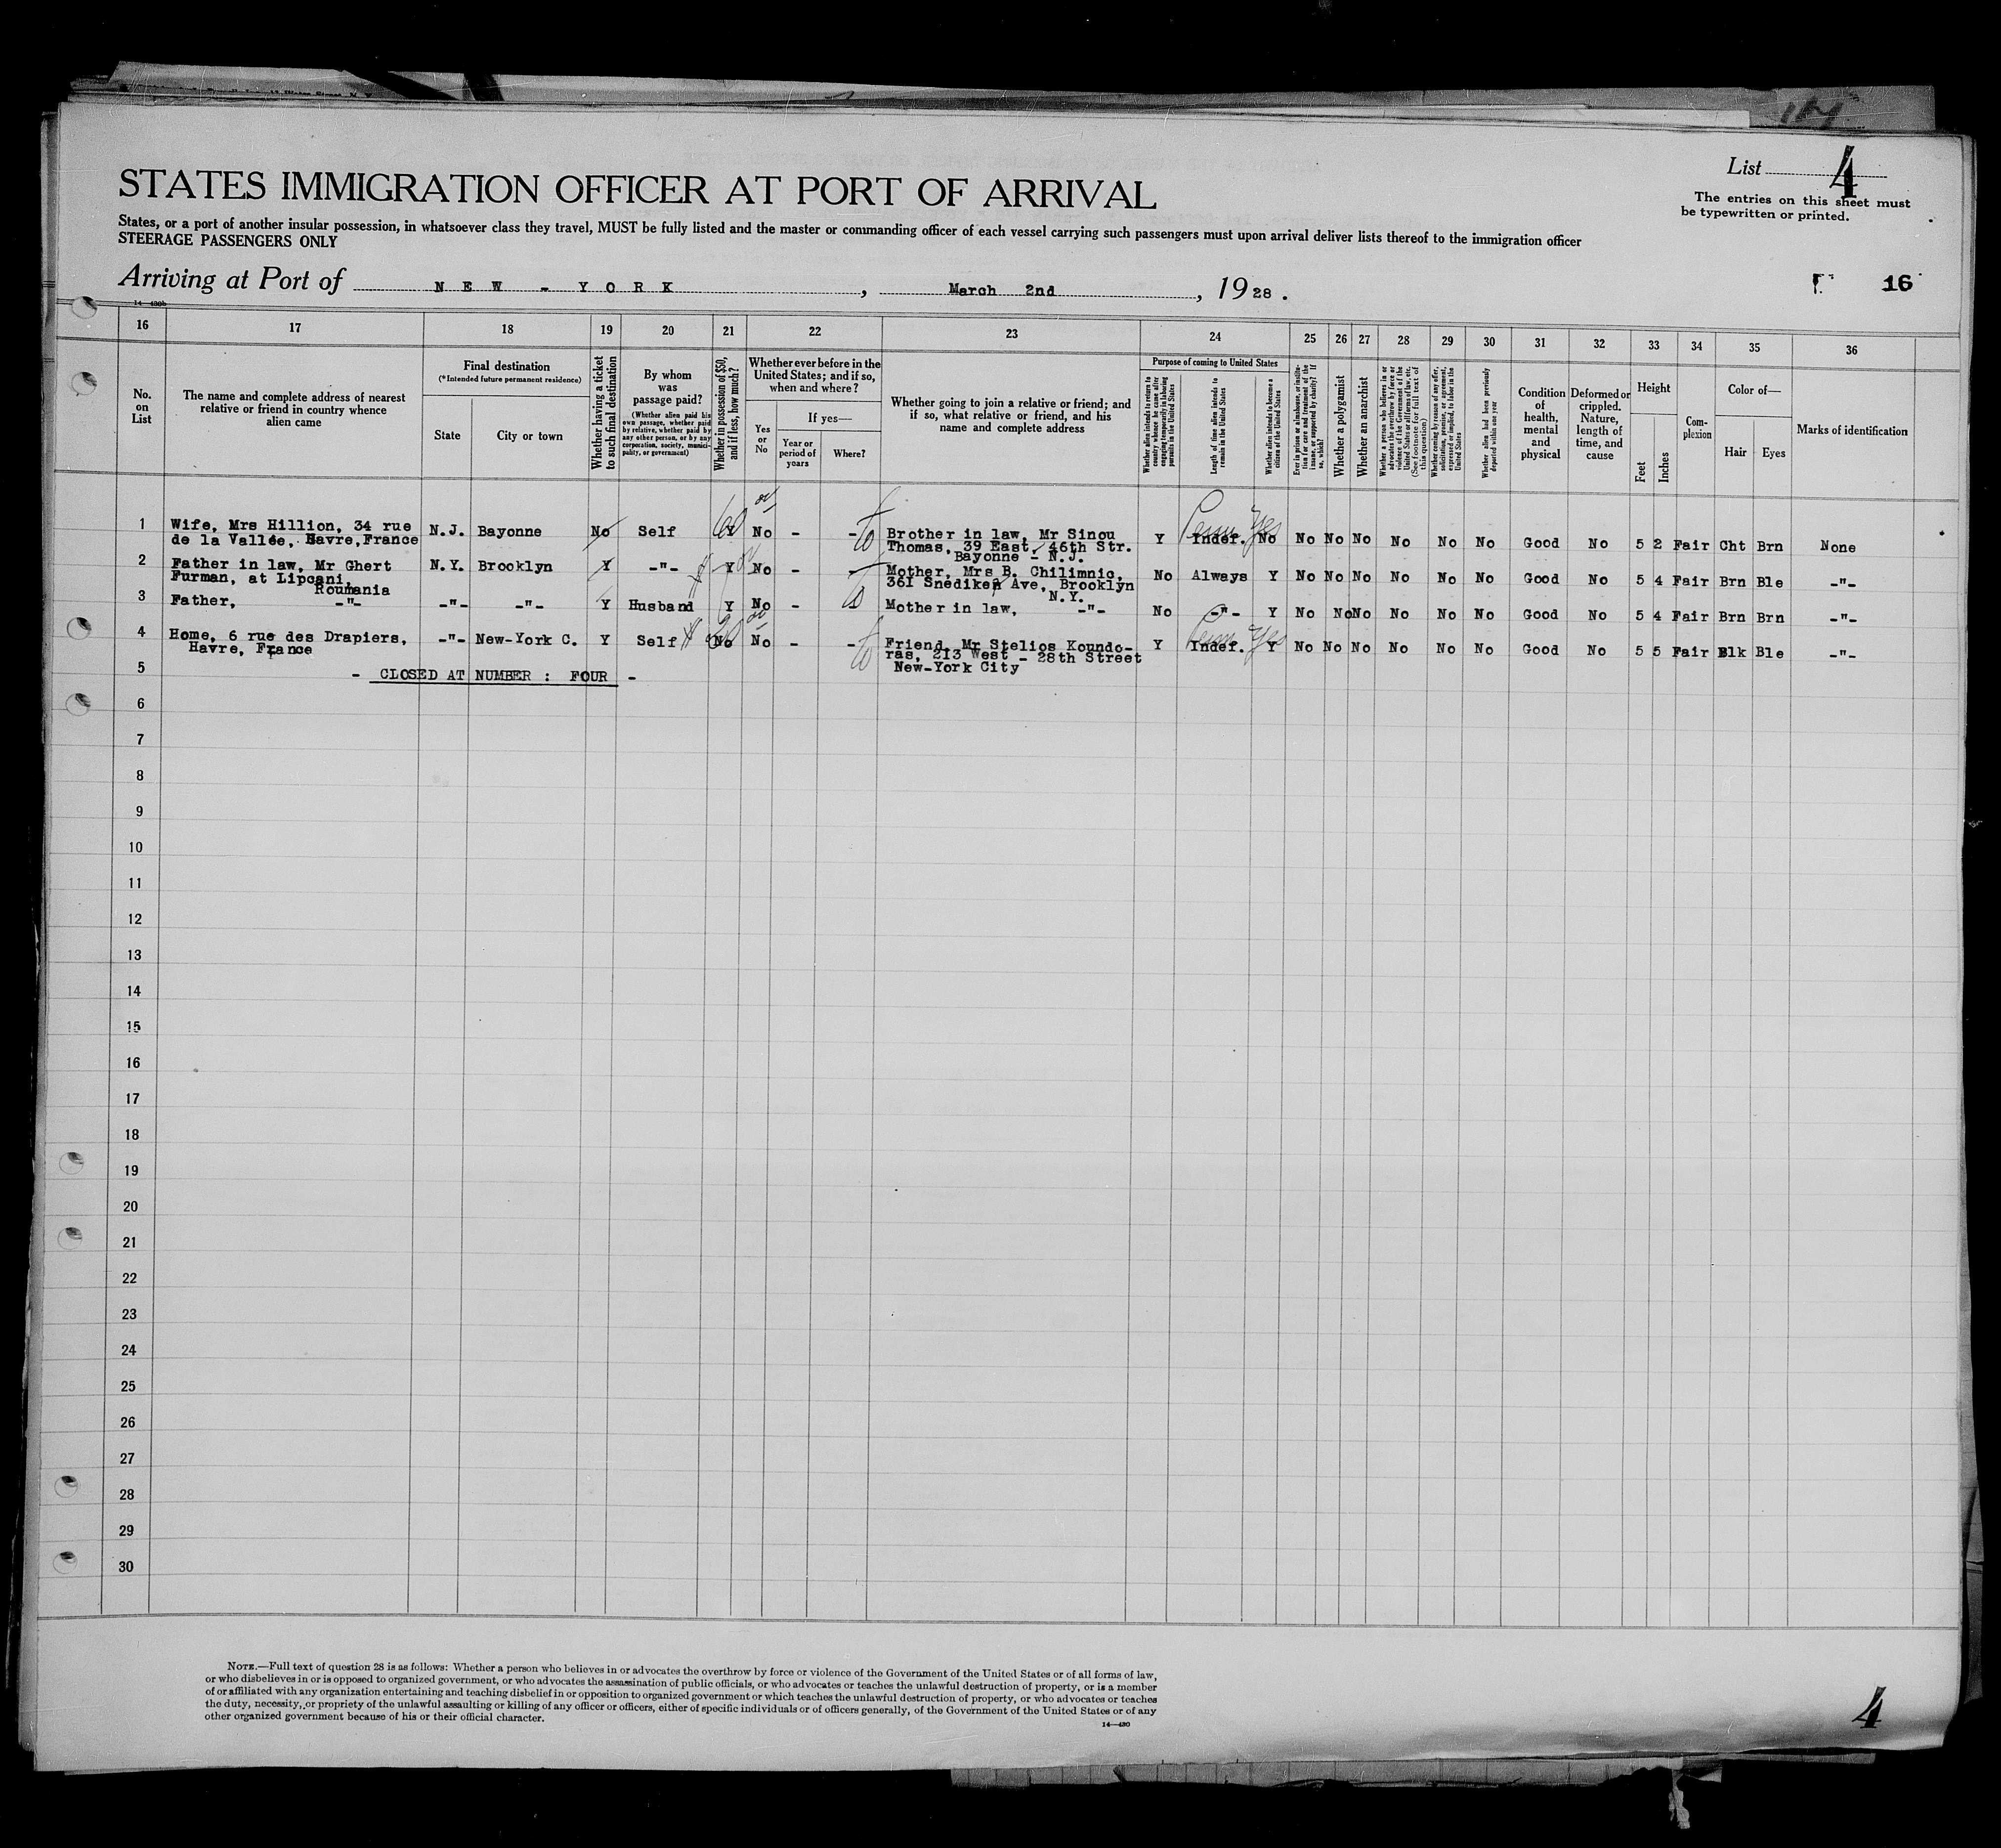 List 4
The entries on this sheet must
be typewritten or printed.
STATES IMMIGRATION OFFICER AT PORT OF ARRIVAL
States, or a port of another insular possession, in whatsoever class they travel, MUST be fully listed and the master or commanding officer of each vessel carrying such passengers must upon arrival deliver lists thereof to the immigration officer
STEERAGE PASSENGERS ONLY
Arriving at Port of NEW - YORK, March 2nd, 1928.
16
14-430b
16 17 18 19 20 21 22 23 24 25 26 27 28 29 30 31 32 33 34 35 36
No.
on
List
The name and complete address of nearest
relative or friend in country whence
alien came
Final destination
(*Intended future permanent residence)
State
City or town
Whether having a ticket
to such final destination
By whom
was
passage paid?
(Whether alien paid his
own passage, whether paid
by relative, whether paid by
any other person, or by any
corporation, society, munici-
pality, or government)
Whether in possession of $50,
and if less, how much?
Whether ever before in the
United States; and if so,
when and where?
Yes
or
No
If yes—
Year or
period of
years
Where?
Whether going to join a relative or friend; and
if so, what relative or friend, and his
name and complete address
Purpose of coming to United States
Whether alien intends to return to
country whence he came after
engaging temporarily in laboring
pursuits in the United States
Length of time alien intends to
remain in the United States
Whether alien intends to become a
citizen of the United States
Ever in prison or almshouse, or institu-
tion for care and treatment of the
insane, or supported by charity? If
so, which?
Whether a polygamist
Whether an anarchist
Whether a person who believes in or
advocates the overthrow by force or
violence of the Government of the
United States or all forms of law, etc.
(See footnote for full text of
this question)
Whether coming by reason of any offer,
solicitation, promise, or agreement,
expressed or implied, to labor in the
United States
Whether alien had been previously
deported within one year
Condition
of
health,
mental
and
physical
Deformed or
crippled.
Nature,
length of
time, and
cause
Height
Feet
Inches
Com-
plexion
Color of—
Hair
Eyes
Marks of identification
1 Wife, Mrs Hillion, 34 rue
de la Vallée, Havre, France N.J. Bayonne No Self 60 Y No - - Brother in law, Mr Sinou
Thomas, 39 East, 46th Str.
Bayonne - N.J. Y Indef. Perm Yes No No No No No No No Good No 5 2 Fair Cht Brn None
2 Father in law, Mr Ghert
Furman, at Lipcani,
Roumania N.Y. Brooklyn Y -"- Y No - Mother, Mrs B. Chilimnic,
361 Snediken Ave, Brooklyn
N.Y. No Always Y No No No No No No Good No 5 4 Fair Brn Ble -"-
3 Father, -"- -"- -"- Y Husband Y No - Mother in law, -"- No -"- Y No No No No No No Good No 5 4 Fair Brn Brn -"-
4 Home, 6 rue des Drapiers,
Havre, France -"- New-York C. Y Self No No - - Friend, Mr Stelios Koundo-
ras, 213 West - 28th Street
New-York City Y Indef. Perm Yes Y No No No No No No Good No 5 5 Fair Blk Ble -"-
5 - CLOSED AT NUMBER : FOUR -
6
7
8
9
10
11
12
13
14
15
16
17
18
19
20
21
22
23
24
25
26
27
28
29
30
NOTE.—Full text of question 28 is as follows: Whether a person who believes in or advocates the overthrow by force or violence of the Government of the United States or of all forms of law,
or who disbelieves in or is opposed to organized government, or who advocates the assassination of public officials, or who advocates or teaches the unlawful destruction of property, or is a member
of or affiliated with any organization entertaining and teaching disbelief in or opposition to organized government or which teaches the unlawful destruction of property, or who advocates or teaches
the duty, necessity, or propriety of the unlawful assaulting or killing of any officer or officers, either of specific individuals or of officers generally, of the Government of the United States or of any
other organized government because of his or their official character.
14-430
4